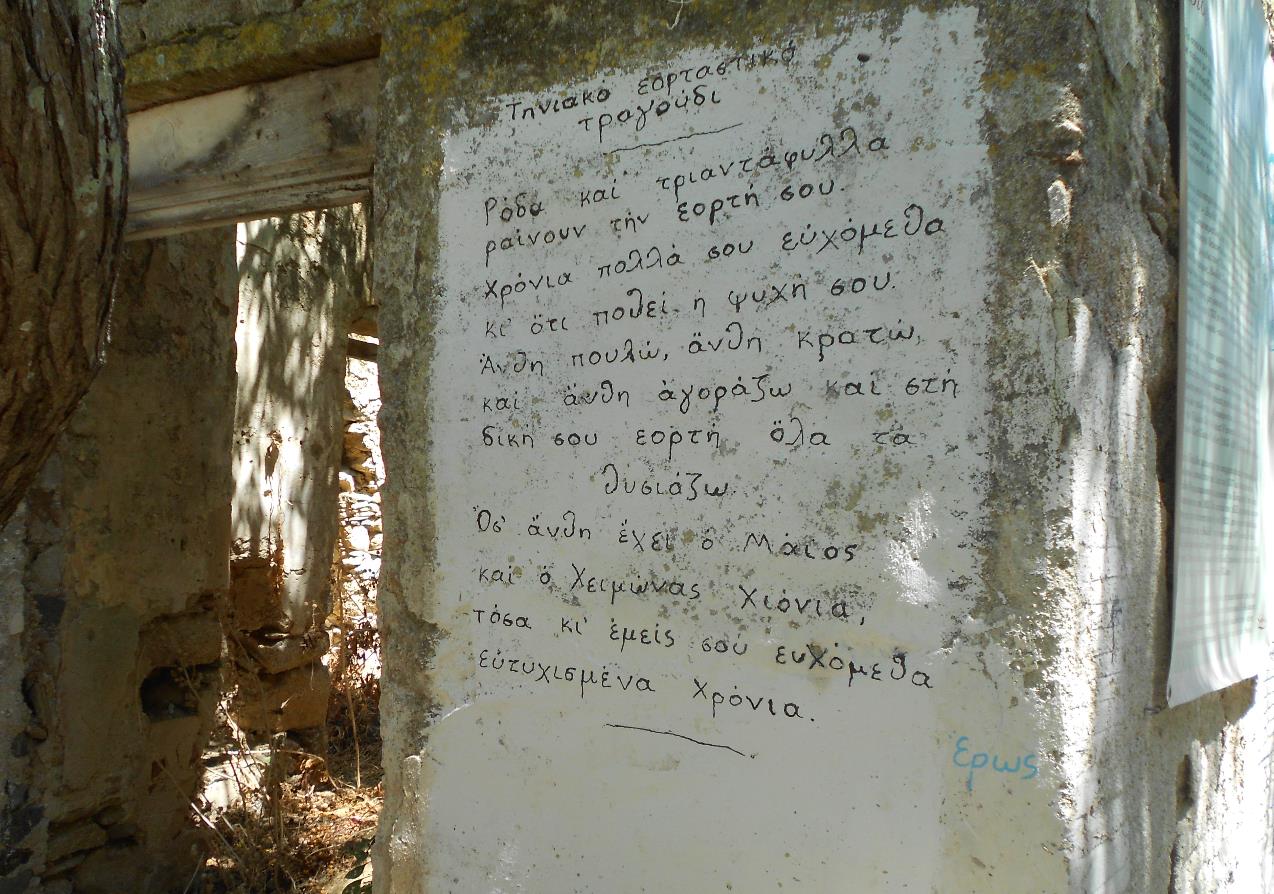 Τηνιακό εορταστικό
τραγούδι
Ρόδα καί τριαντάφυλλα
ραίνουν τήν εορτή σου.
Χρόνια πολλά σου εὐχόμεθα
κι' ὅτι ποθεί ἡ ψυχή σου.
Ἄνθη πουλώ, ἄνθη κρατώ,
καί ἄνθη ἀγοράζω καί στή
δική σου εορτή ὅλα τά
θυσιάζω.
Ὅσ' ἄνθη ἔχει ὁ Μάϊος
καί ὁ Χειμώνας Χιόνια,
τόσα κι' ἐμείς σού ευχόμεθα
εὐτυχισμένα Χρόνια.
έρως